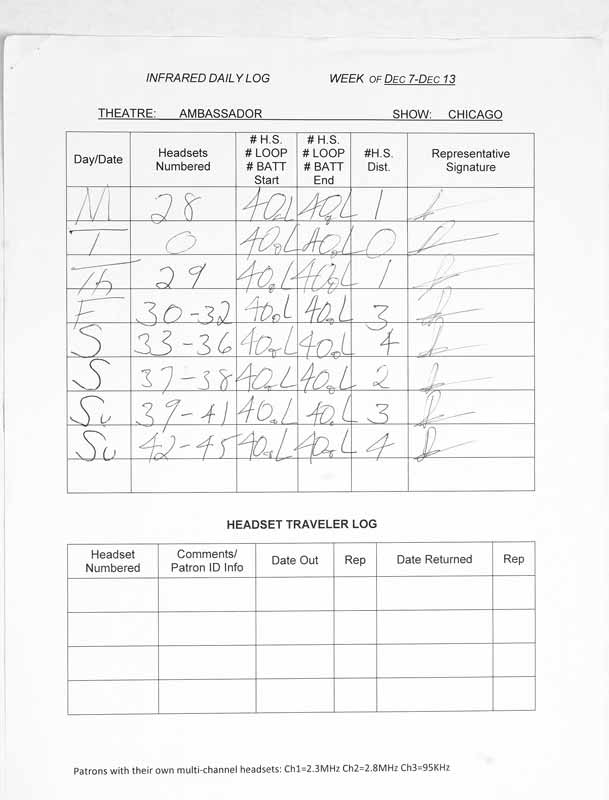 INFRARED DAILY LOG WEEK OF DEC 7-DEC 13
THEATRE: AMBASSADOR SHOW: CHICAGO
Day/Date Headsets Numbered # H.S. # LOOP # BATT Start # H.S. # LOOP # BATT End #H.S. Dist. Representative Signature
M 28 1
T 0 0
Th 29 1
F 30-32 3
S 33-36 4
S 37-38 2
Su 39-41 3
Su 42-45 4
HEADSET TRAVELER LOG
Headset Numbered Comments/ Patron ID Info Date Out Rep Date Returned Rep
Patrons with their own multi-channel headsets: Ch1=2.3MHz Ch2=2.8MHz Ch3=95KHz